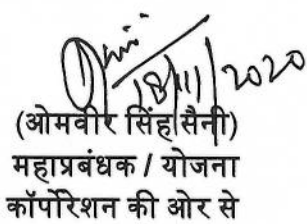 18/11/2020
(ओमवीर सिंह सैनी)
महाप्रबंधक / योजना
कॉर्पोरेशन की ओर से